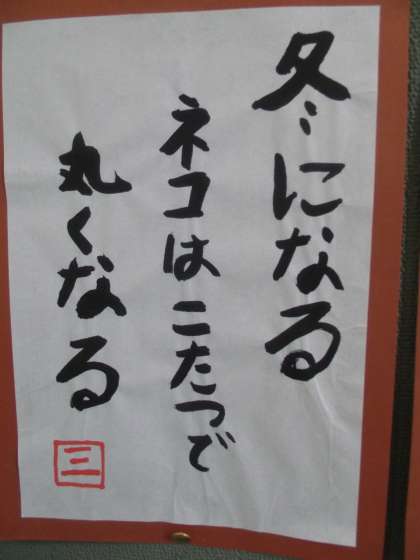 冬になる
ネコはこたつで
丸くなる
三